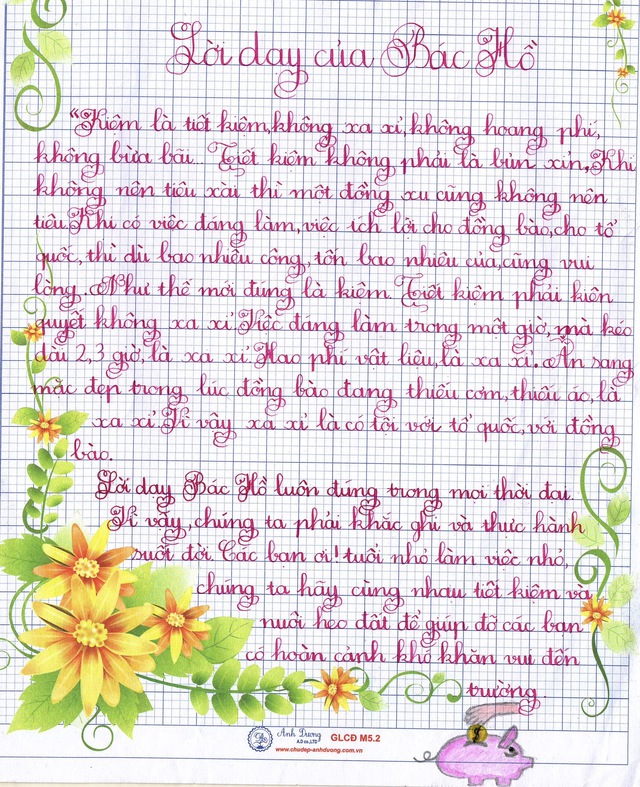 Lời dạy của Bác Hồ
"Kiệm là tiết kiệm, không xa xỉ, không hoang phí,
không bừa bãi... Tiết kiệm không phải là bủn xỉn, Khi
không nên tiêu xài thì một đồng xu cũng không nên
tiêu. Khi có việc đáng làm, việc ích lợi cho đồng bào, cho tổ
quốc, thì dù bao nhiêu công, tốn bao nhiêu của, cũng vui
lòng. Như thế mới đúng là kiệm. Tiết kiệm phải kiên
quyết không xa xỉ. Việc đáng làm trong một giờ, mà kéo
dài 2, 3 giờ, là xa xỉ. Hao phí vật liệu, là xa xỉ. Ăn sang
mặc đẹp trong lúc đồng bào đang thiếu cơm, thiếu áo, là
xa xỉ. Vì vậy xa xỉ là có tội với tổ quốc, với đồng
bào.
Lời dạy Bác Hồ luôn đúng trong mọi thời đại.
Vì vậy, chúng ta phải khắc ghi và thực hành
suốt đời. Các bạn ơi! tuổi nhỏ làm việc nhỏ,
chúng ta hãy cùng nhau tiết kiệm và
nuôi heo đất để giúp đỡ các bạn
có hoàn cảnh khó khăn vui đến
trường.
Anh Dương
A.D co.,LTD
GLCĐ M5.2
www.chudep-anhduong.com.vn